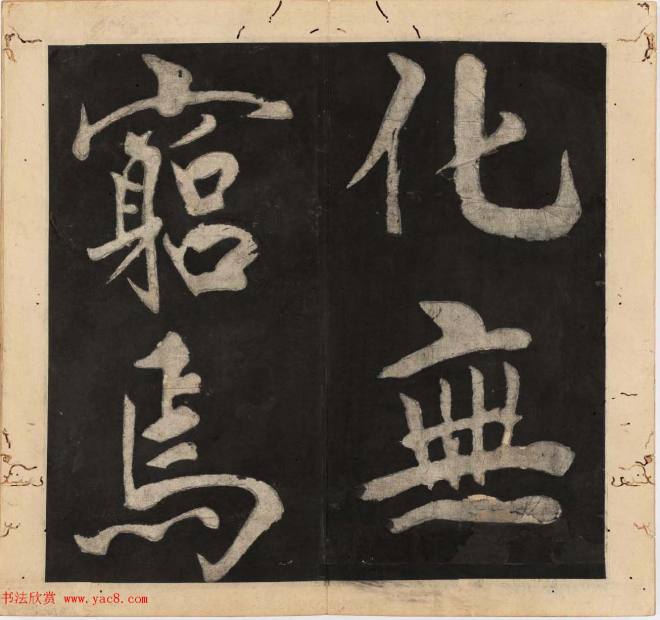 化無
窮焉
书法欣赏 www.yac8.com